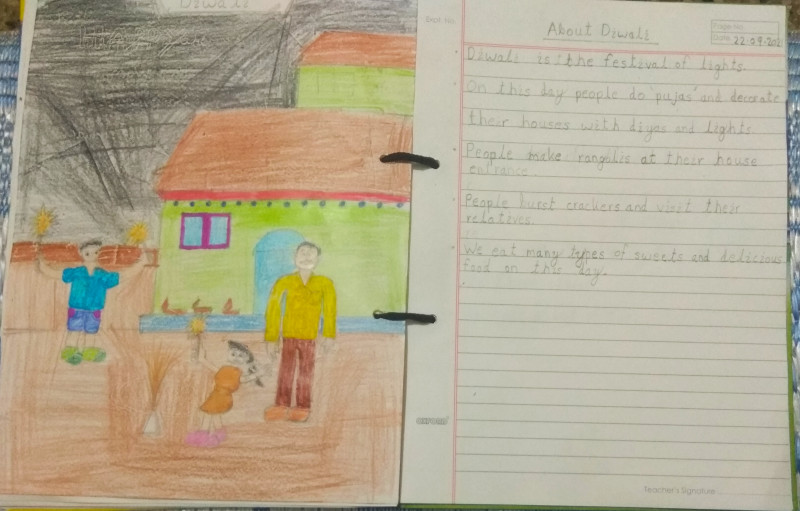 Diwali
Happy
About Diwali
Page No.
Date 22-09-202
Diwali is the festival of lights.
On this day people do "pujas" and decorate
their houses with diyas and lights.
People make rangolis at their house
entrance.
People burst crackers and visit their
relatives.
We eat many types of sweets and delicious
food on this day.
Teacher's Signature